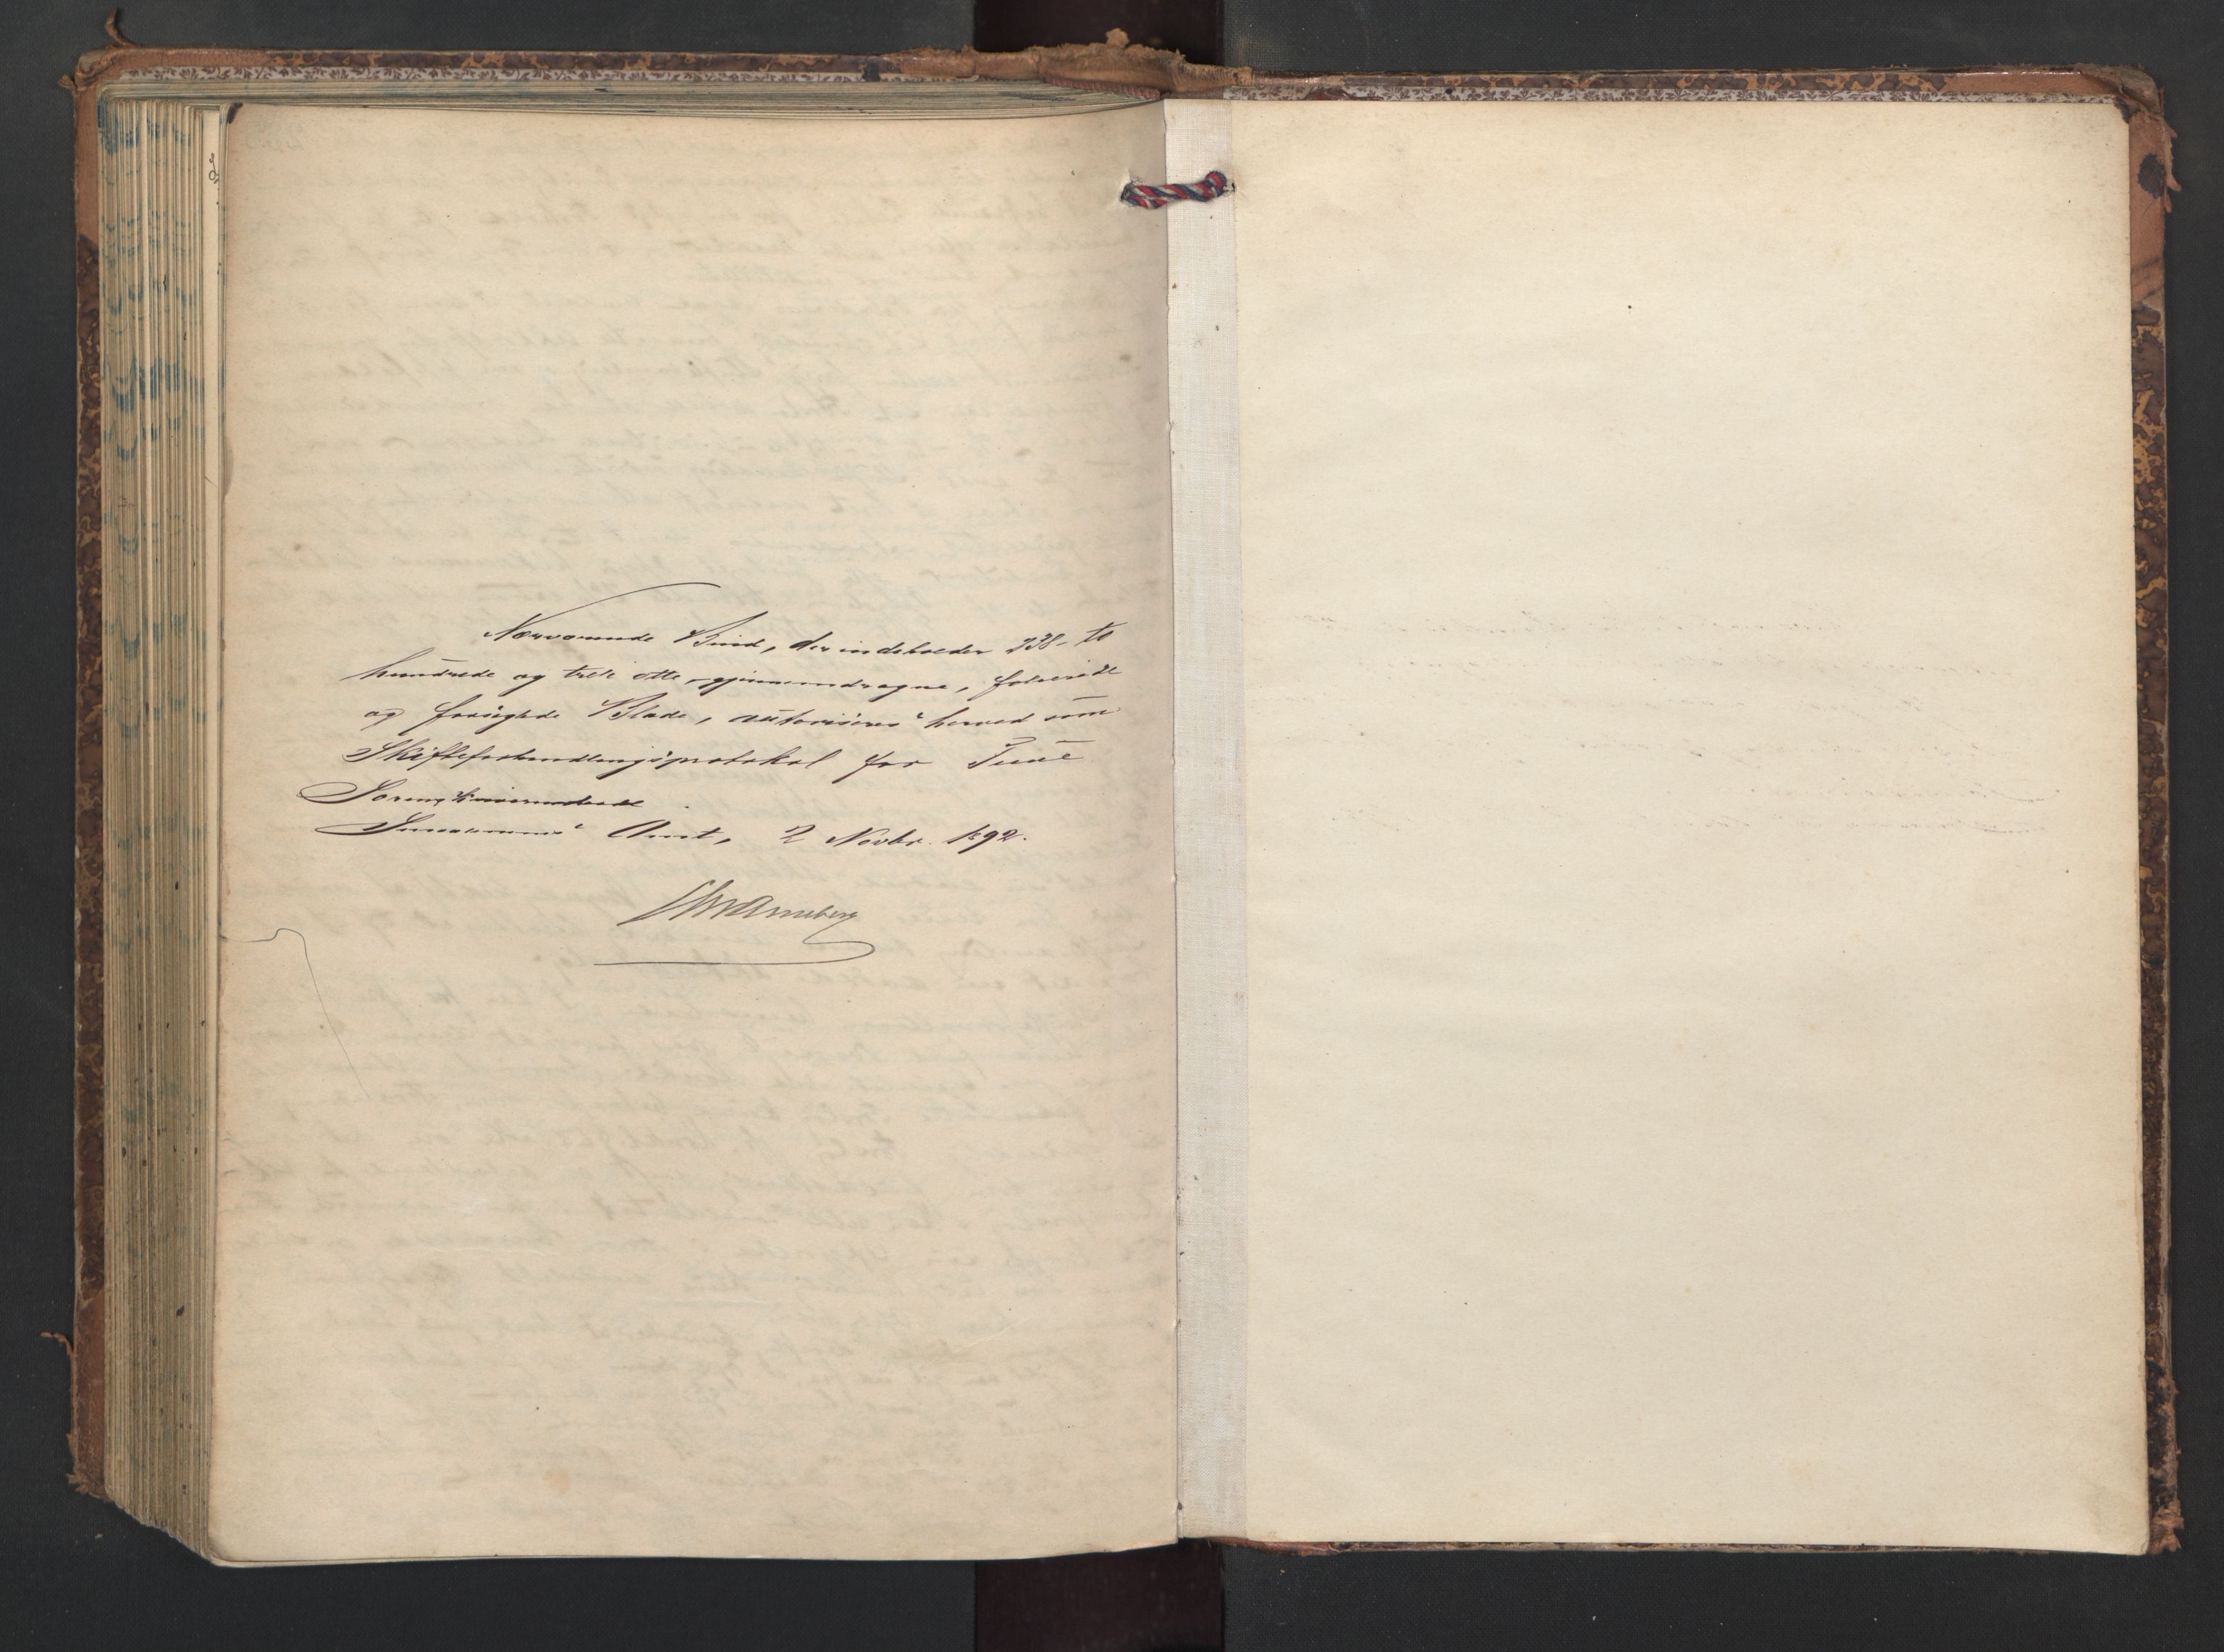 Nærværende Bind, der indeholder 238 - to
hundrede og treti otte - gjennemdragne, folierede
og forseglede Blade, autoriseres herved som
Skifteforhandlingsprotokol for Tune
Sorenskriverembede
Smaalenenes Amt, 2 Novbr. 1892.